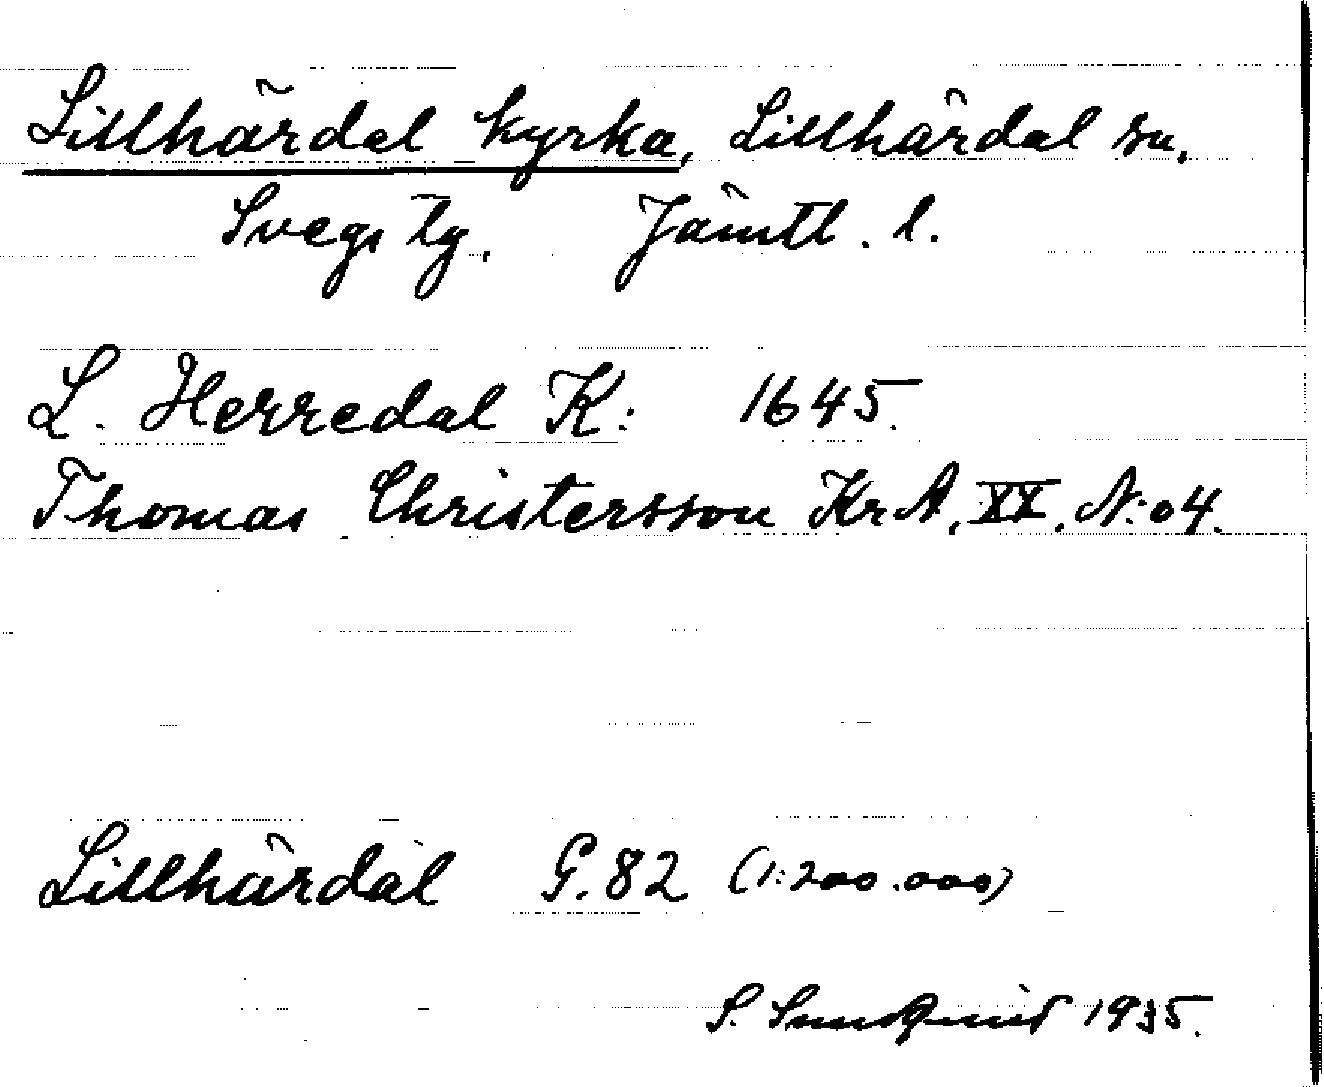 Lillhärdal kyrka, Lillhärdal sn.
Svegs tg. Jämtl. l.
L. Herredal K: 1645.
Thomas Christersson KrA, XX, N:o 4.
Lillhärdal G. 82 (1:200.000)
S. Sundqvist 1935.